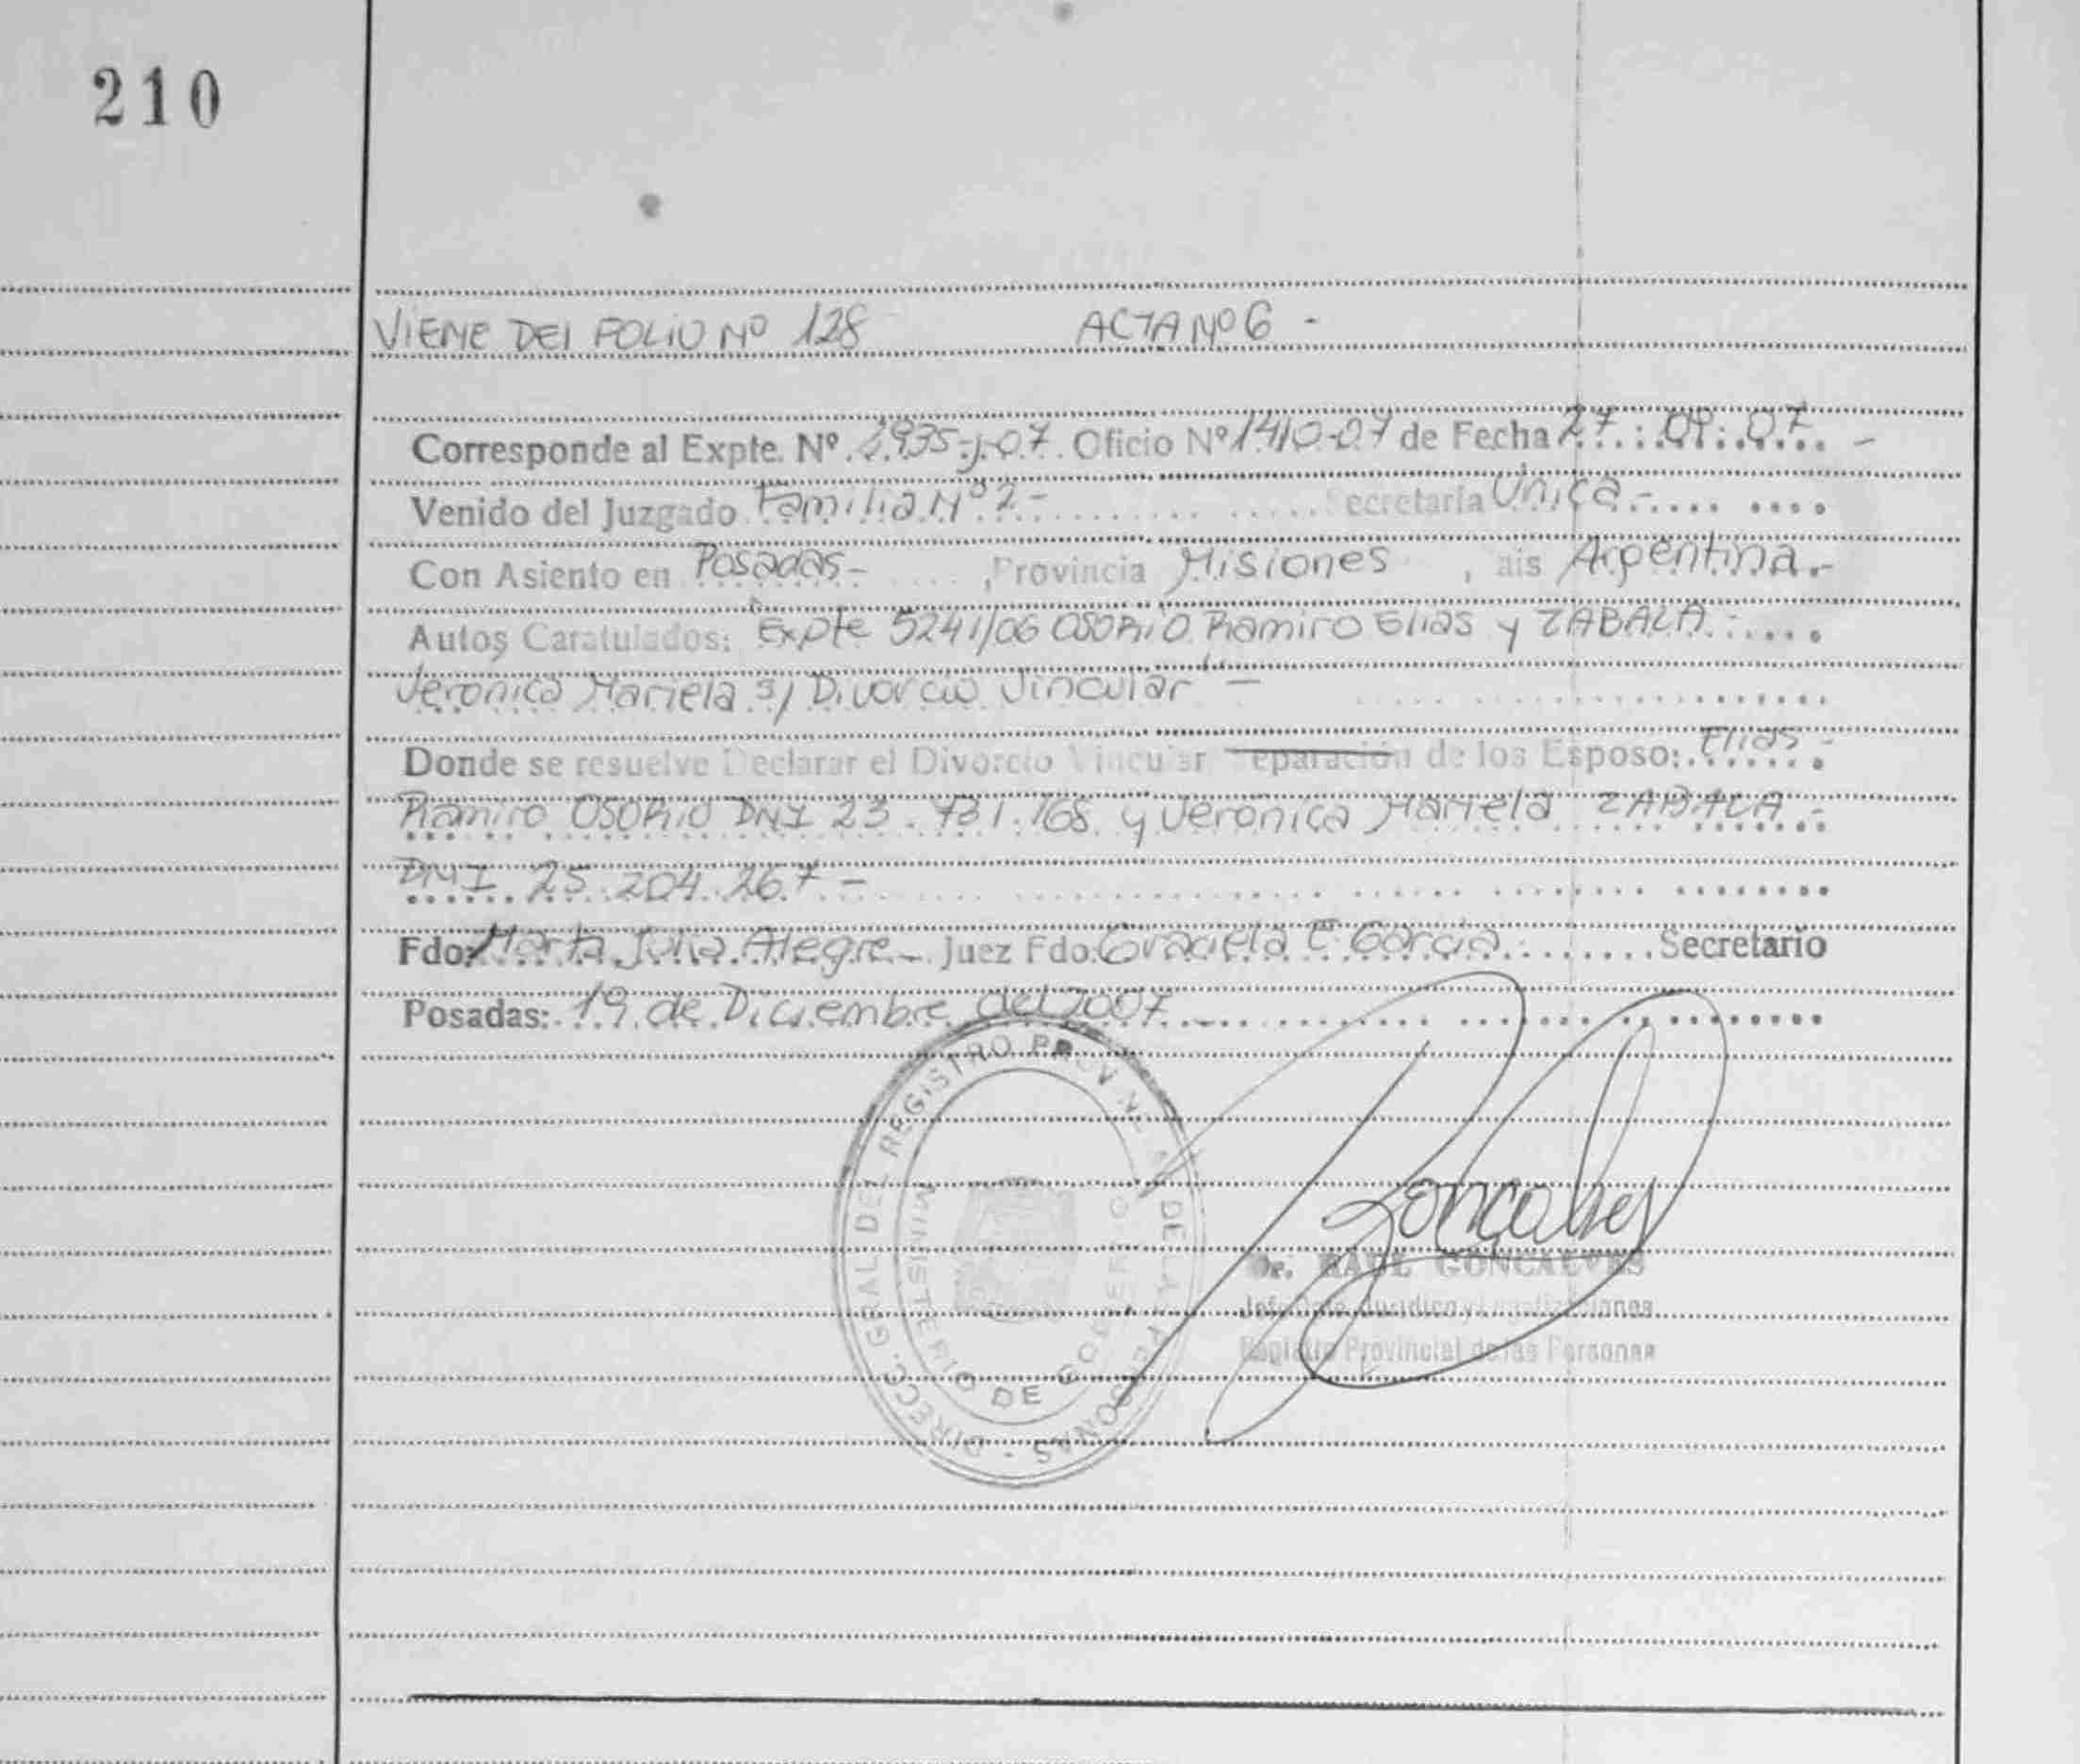 210
VIENE DEL FOLIO Nº 128 ACTA Nº 6 -
Corresponde al Expte. Nº 2935-J-07. Oficio Nº 1410-07 de Fecha 27 : 09 : 07. -
Venido del Juzgado Familia Nº 2 - Secretaría Única -
Con Asiento en Posadas - , Provincia Misiones , ais Argentina. -
Autos Caratulados: "Expte 5241/06 OSORIO Ramiro Elias y ZABALA
Veronica Mariela s/ Divorcio Vincular" -
Donde se resuelve Declarar el Divorcio Vincular Separación de los Esposo: Elias -
Ramiro OSORIO DNI 23.731.168 y Veronica Mariela ZABALA -
DNI. 25.204.267 -
Fdo: Marta Julia Alegre - Juez Fdo: Graciela E. Garcia Secretario
Posadas: 19 de Diciembre del 2007 -
DIRECC. GRAL DEL REGISTRO PROVINCIAL DE LAS PERSONAS -
MINISTERIO DE GOBIERNO
Gonçalves
Dr. RAUL GONCALVES
Jefe Dpto. Jurídico y Legalizaciones
Registro Provincial de las Personas